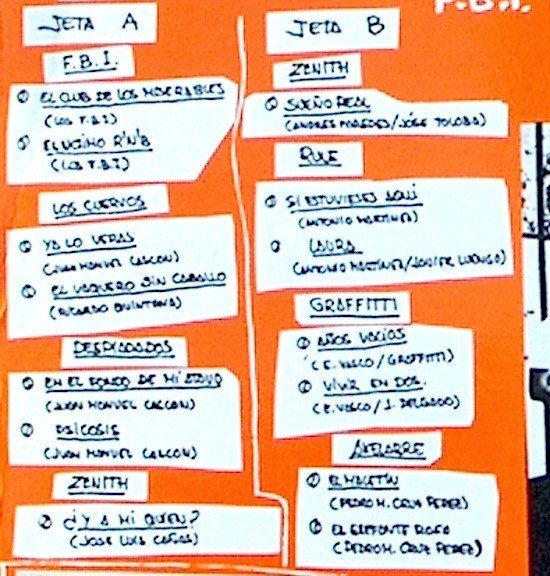 F.B.I.
JETA A
F.B.I.
EL CLUB DE LOS MISERABLES
(LOS F.B.I)
EL ULTIMO R'N'B
(LOS F.B.I)
LOS CUERVOS
YA LO VERAS
(JUAN MANUEL CASCON)
EL VAQUERO SIN CABALLO
(RICARDO QUINTANA)
DESPIADADOS
EN EL FONDO DE MI
(JUAN MANUEL CASCON)
PSICOSIS
(JUAN MANUEL CASCON)
ZENITH
¿Y A MI QUIEN?
(JOSE LUIS CAÑAS)
JETA B
ZENITH
SUEÑO REAL
(ANDRES PAREDES/JOSE TOLOBA)
RULE
SI ESTUVIESES AQUI
(ANTONIO MARTINEZ)
LAURA
(ANTONIO MARTINEZ/JAVIER LUENGO)
GRAFFITTI
AÑOS VACIOS
(E. VASCO/GRAFFITTI)
VIVIR EN DOS.
(E. VASCO/J. DELGADO)
AKELARRE
EL MALETIN
(PEDRO M. CRUZ PEREZ)
EL ELEFANTE ROSA
(PEDRO M. CRUZ PEREZ)